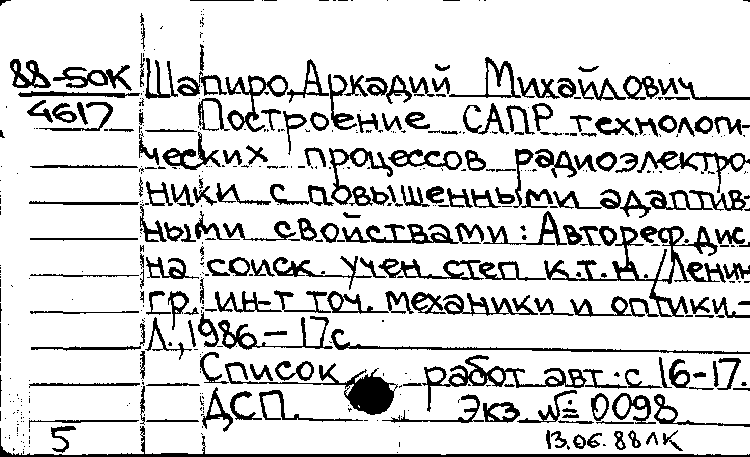 88-50К Шапиро, Аркадий Михайлович
4617 Построение САПР технологи-
ческих процессов радиоэлектро-
ники с повышенными адаптив-
ными свойствами: Автореф. дис.
на соиск. учен. степ. к.т.н. /Ленин
гр. ин-т точ. механики и оптики.-
Л., 1986.- 17с.
Список работ авт.: с 16-17.
ДСП. Экз № 0098
5 13.06.88 ЛК